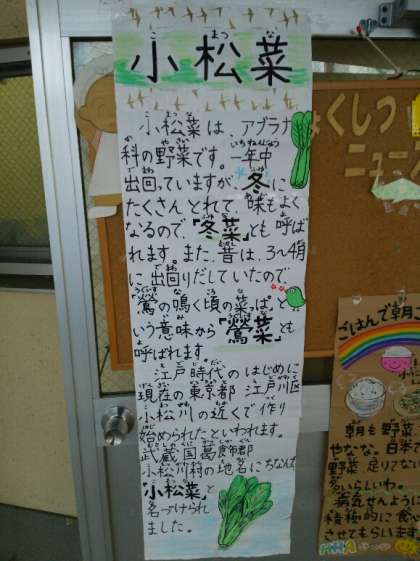 小松菜
小松菜は、アブラナ
科の野菜です。一年中
出回っていますが、冬に
たくさんとれて、味もよく
なるので、「冬菜」とも呼ば
れます。また、昔は、3〜4月
に出回りだしていたので、
「鶯の鳴く頃の菜っぱ」と
いう意味から「鶯菜」とも
呼ばれます。
江戸時代のはじめに
現在の東京都江戸川区
小松川の近くで作り
始められたといわれます。
武蔵国葛飾郡
小松川村の地名にちなんで
「小松菜」と
名づけられ
ました。
くしつ
ニュース
ごはんで朝
朝も野菜
やなな。日本で
野菜足りてな
多いらしいわ。
病気せんように
積極的に食べ
させてもらいます